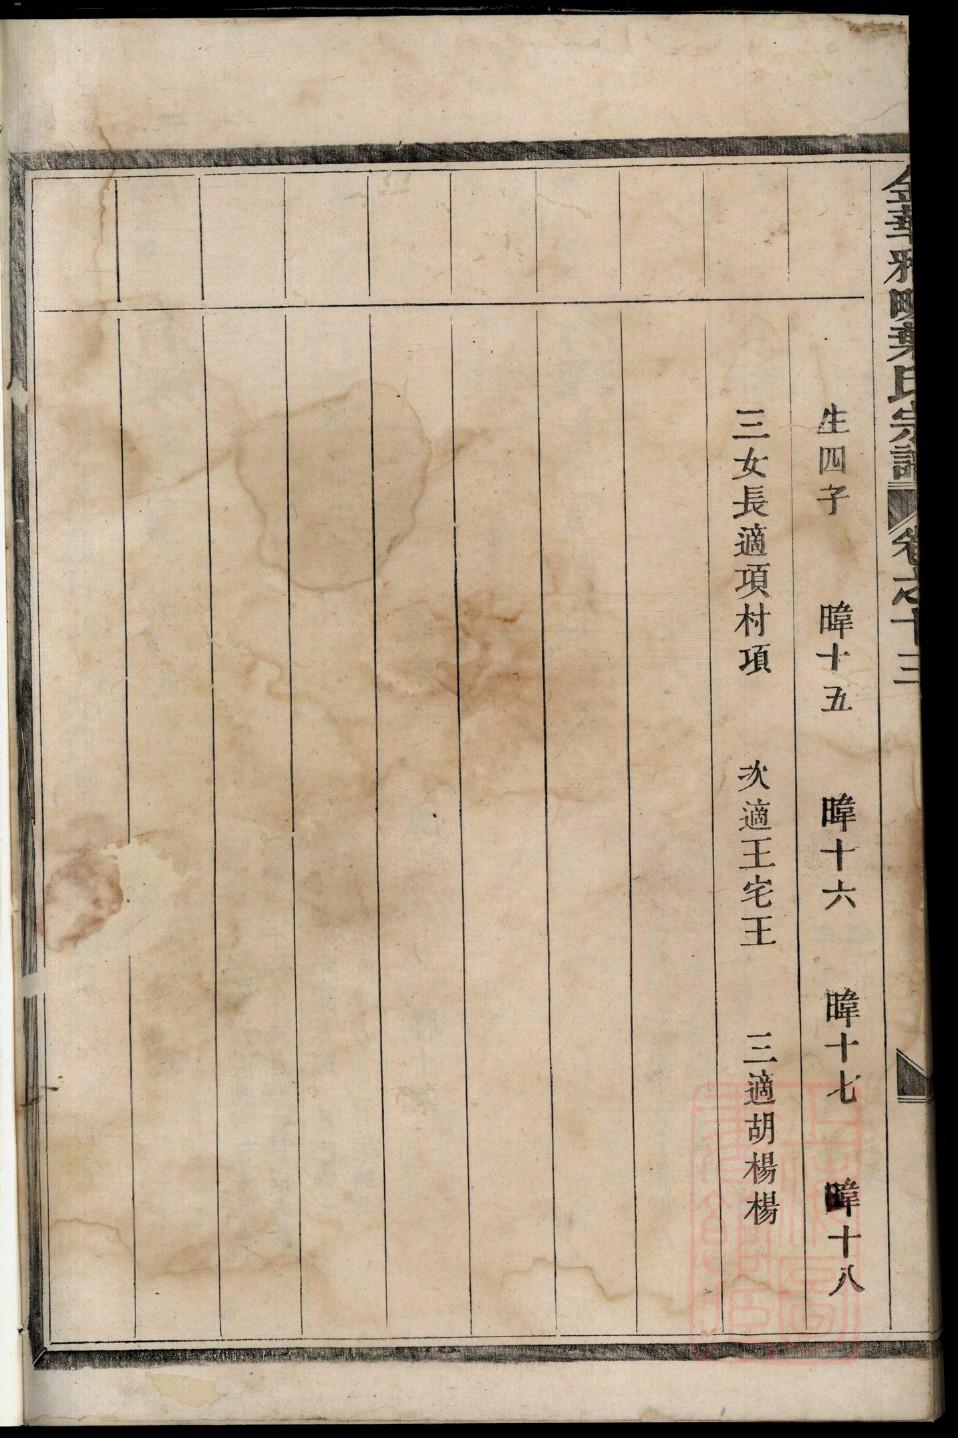 金華雅畈葉氏宗譜 卷之十三
生四子 暐十五 暐十六 暐十七 暐十八
三女長適項村項 次適王宅王 三適胡楊楊